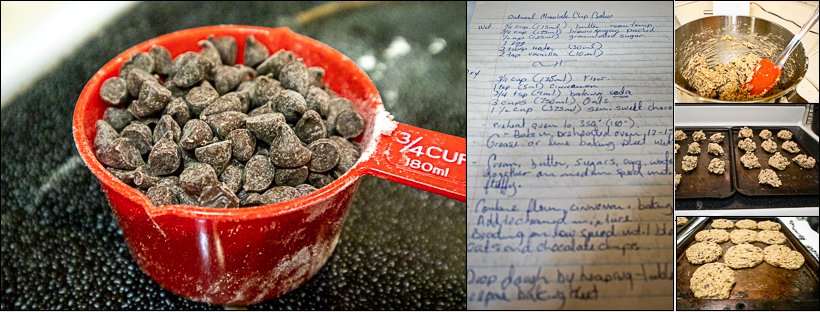 3/4 CUP
180ml
Oatmeal Chocolate Chip Cookies
Wet 3/4 cup (175ml) butter, room temp.
3/4 cup (175ml) brown sugar packed
1/2 cup (125ml) granulated sugar
1 egg
2 tbsp water (30ml)
2 tsp vanilla (10ml)
Dry
3/4 cup (175ml) Flour
1 tsp (5ml) cinnamon
3/4 tsp (4ml) baking soda
3 cups (750ml) Oats
1 1/2 cup (375ml) semi sweet choco
Preheat oven to 350° (180°)
- Bake in preheated oven 12-15
Grease or line baking
Cream butter, sugars, egg,
together on medium speed
fluffy.
Combine flour, cinnamon, baking
Add to creamed mixture
Beating on low speed until
oats and chocolate chips.
Drop dough by heaping
baking sheet